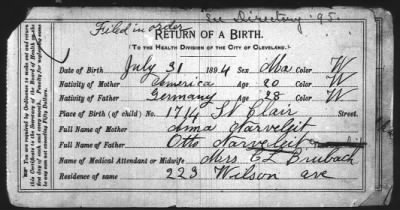 See Directory '95.
Filed in order
RETURN OF A BIRTH.
[TO THE HEALTH DIVISION OF THE CITY OF CLEVELAND.]
Date of Birth July 31 1894 Sex Ma Color W
Nativity of Mother America Age 20 Color W
Nativity of Father Germany Age 28 Color W
Place of Birth (of child) No. 1714 St Clair Street.
Full Name of Mother Anna Narveleit
Full Name of Father Otto Narveleit
Name of Medical Attendant or Midwife Mrs E L Brubach
Residence of same 223 Wilson ave
You are required by Ordinance to make out and return
this Certificate to the Secretary of the Board of Health within
five day of each and every month. Penalty for neglecting same
in any sum not exceeding Fifty Dollars.